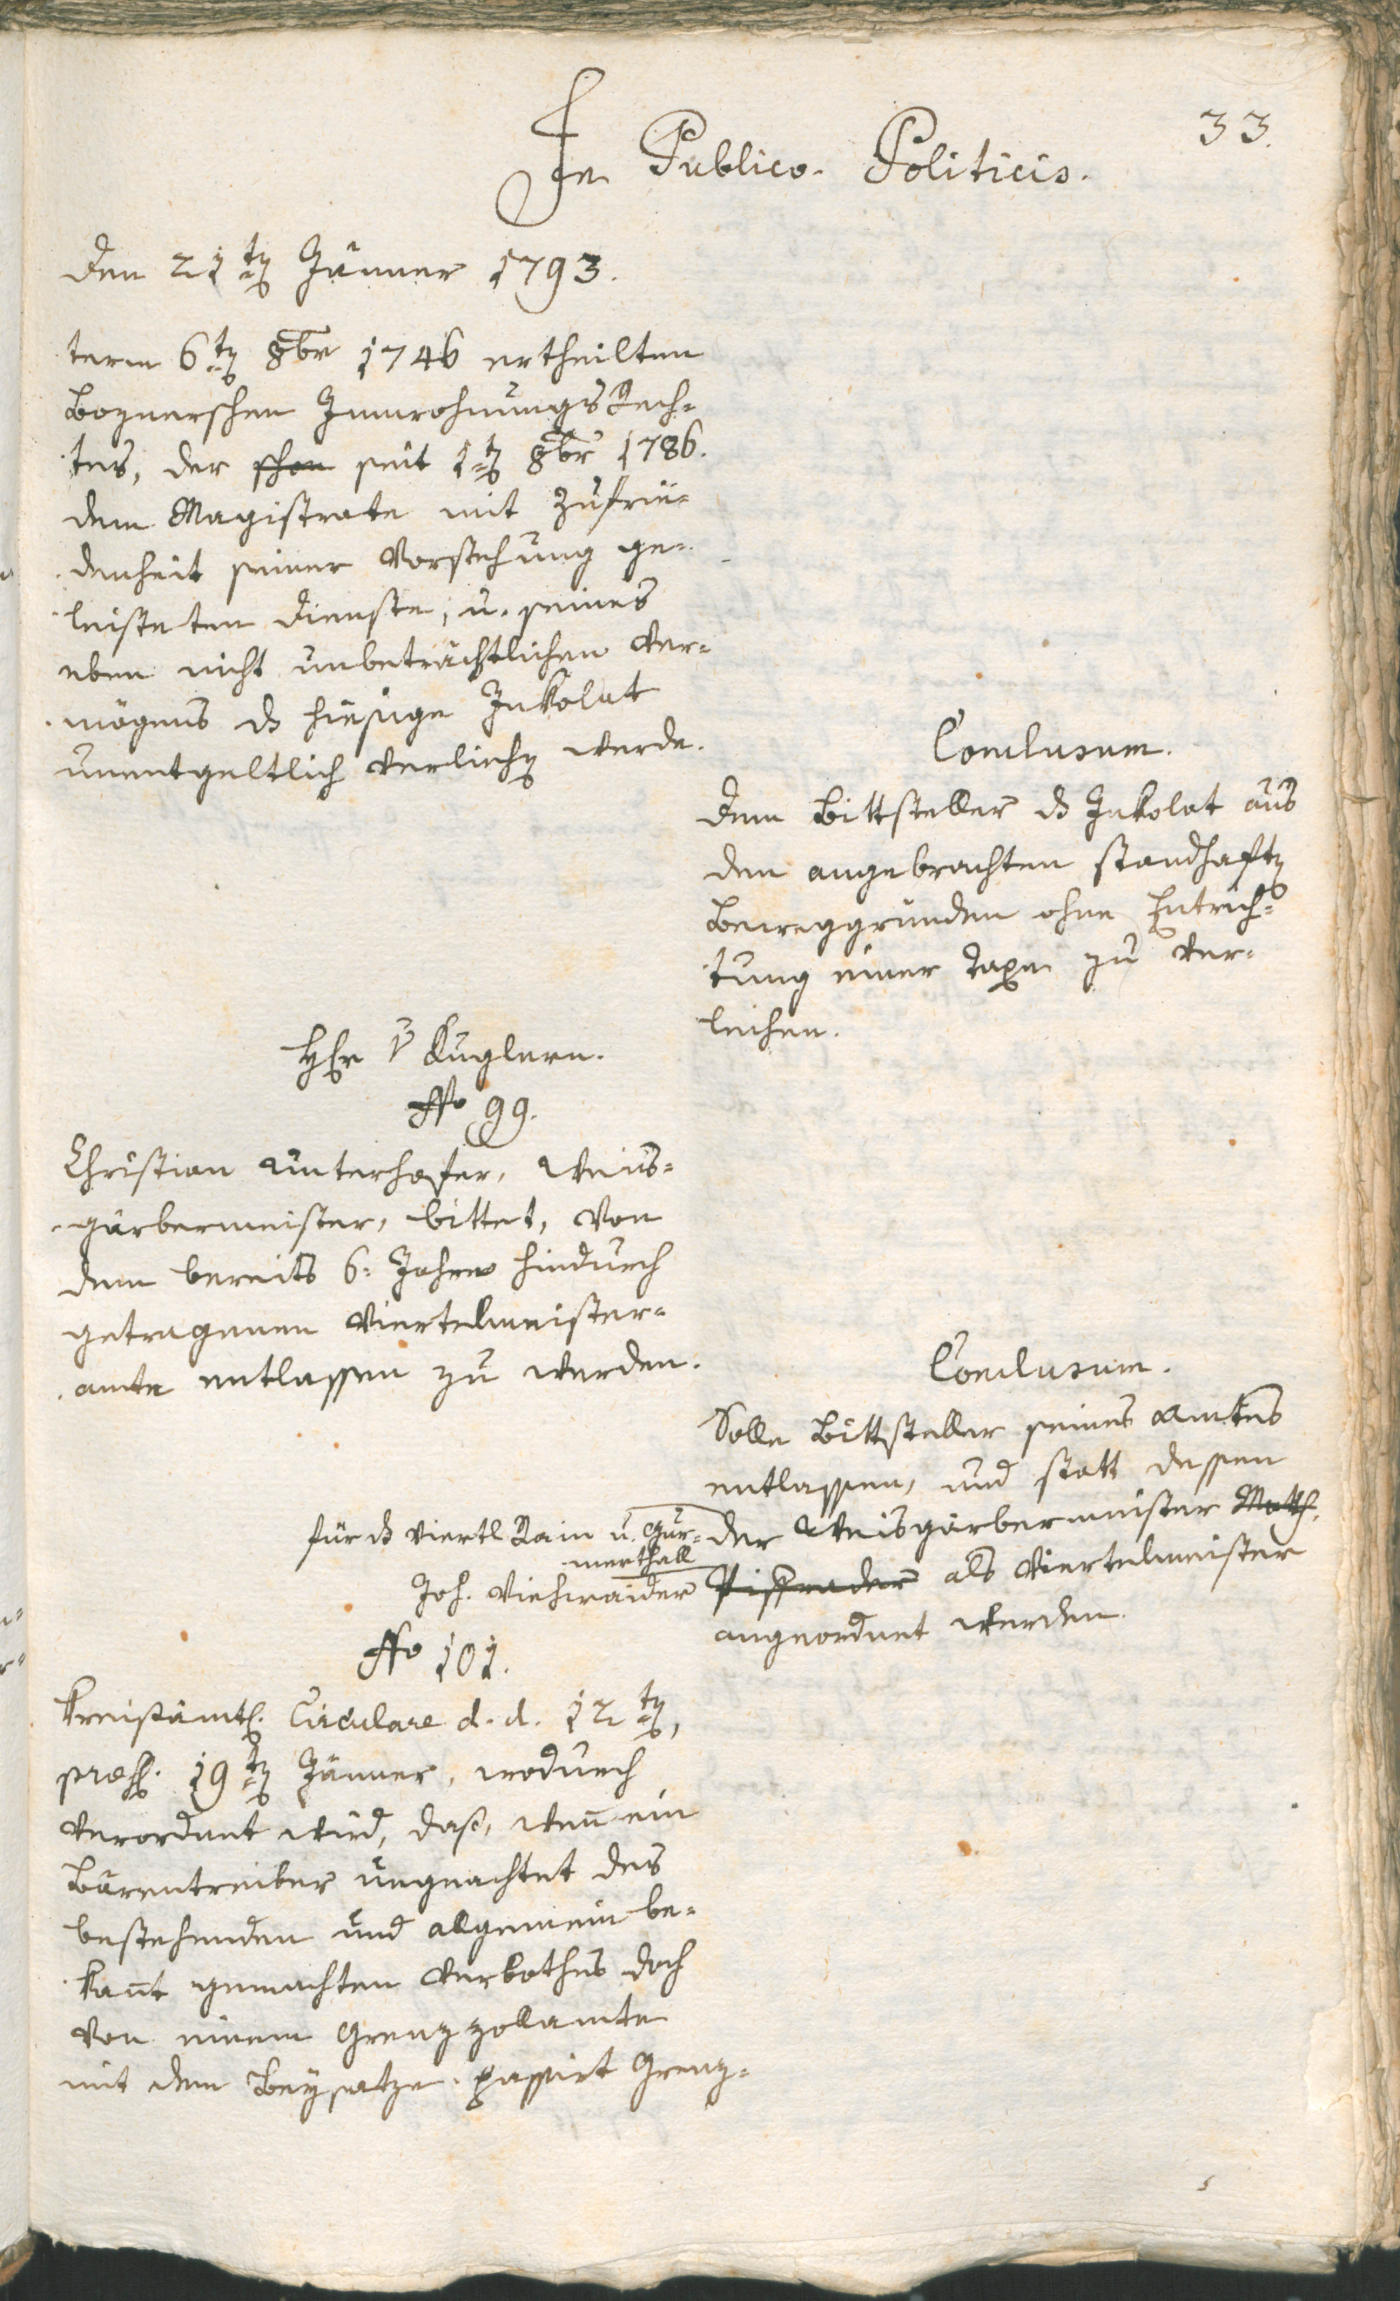 33.
In Publico-Politicis.
den 21ten Jänner 1793.
term 6ten 8br 1746 ertheilten
Boznerschen Innwohnungs Rech-
tes, der schon seit 1ten 8br 1786.
dem Magistrate mit Zufrie-
denheit seiner Vorstehung ge-
leisteten Dienste, u. seines
eben nicht unbeträchtlichen Ver-
mögens ds hiesige Inkolat
unentgeltlich verliehen werde.
Conclusum.
Dem Bittsteller ds Inkolat aus
den angebrachten standhaften
Beweggründen ohne Entrich-
tung einer Taxe zu ver-
leihen.
Hr v Kuglern.
No 99.
Christian Unterhofer, Weis-
gärbermeister, bittet, von
dem bereits 6: Jahre hindurch
getragenen Viertelmeister-
amte entlassen zu werden.
Conclusum.
Solle Bittsteller seines Amtes
entlassen, und statt dessen
der Weisgärbermeister Math.
Pissrader als Viertelmeister
angeordnet werden.
für ds Viertl Rain u. Gur-
merthall
Joh. Viehwaider
No 101.
Kreisämtl. Circulare d. d. 12ten,
præs. 19ten Jänner, wodurch
verordnet wird, daß, wen̄ ein
Bärentreiber ungeachtet des
bestehenden und allgemein be-
kan̄t gemachten Verbothes doch
von einem Grenzzollamte
mit dem Beysatze passirt Grenz-